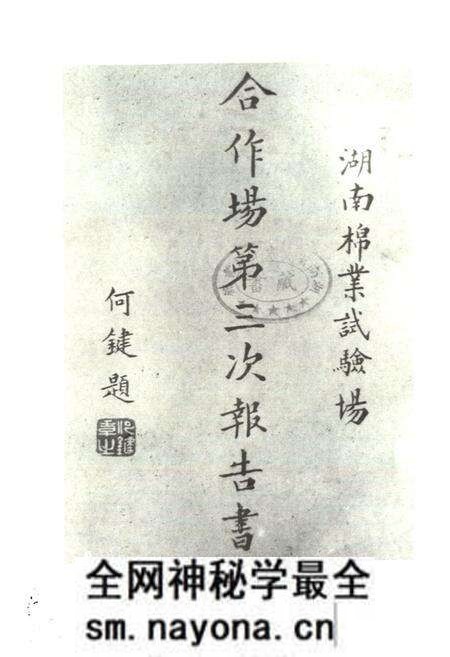 湖南棉業試驗場
合作場第三次報告書
何鍵題
藏書
全网神秘学最全
sm.nayona.cn